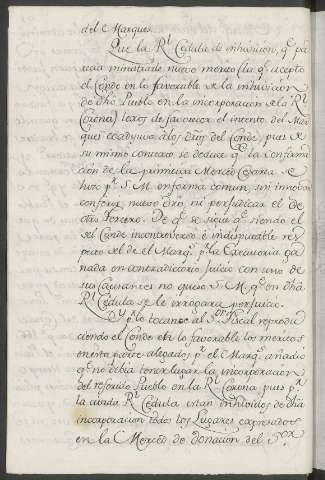 del Marques.
Que la Rl. Cedula de inhivicion, qe. pa
recia ministrarle nuevo merito (la qe. acepto
el Conde en lo favorable de la inhivicion
de dho. Pueblo en la incorporacion de la Rl.
Corona) lexos de favorecer el intento del Mar
ques coadyuva a los dros del Conde, pues de
su mismo contexto se deduce qe. la Confirma
cion de la primera Merced Cesarea se
hizo pr. S. M. en forma comun, sin innovar
conferir nuevo dro. ni perjudicar el de
otro tercero. De qe. se sigue qe. siendo el
del Conde incontroverso é indisputable res
pecto del de el Marqs. pr. la Executoria ga
nada en contradictorio Juicio con uno de
sus causantes no quiso S. M. qe. en dha.
Rl. Cedula se le irrogara perjuicio.
Y pr. lo tocante al Sor. Fiscal reprodu
ciendo el Conde en lo favorable los meritos
en esta parte alegados pr. el Marqs. añadio
qe. no debia tener lugar la incorporacion
del referido Pueblo en la Rl. Corona pues pr.
la citada Rl. Cedula eran inhividos de dha.
incorporacion todos los Lugares expresados
en la Merced de donacion del Sor.